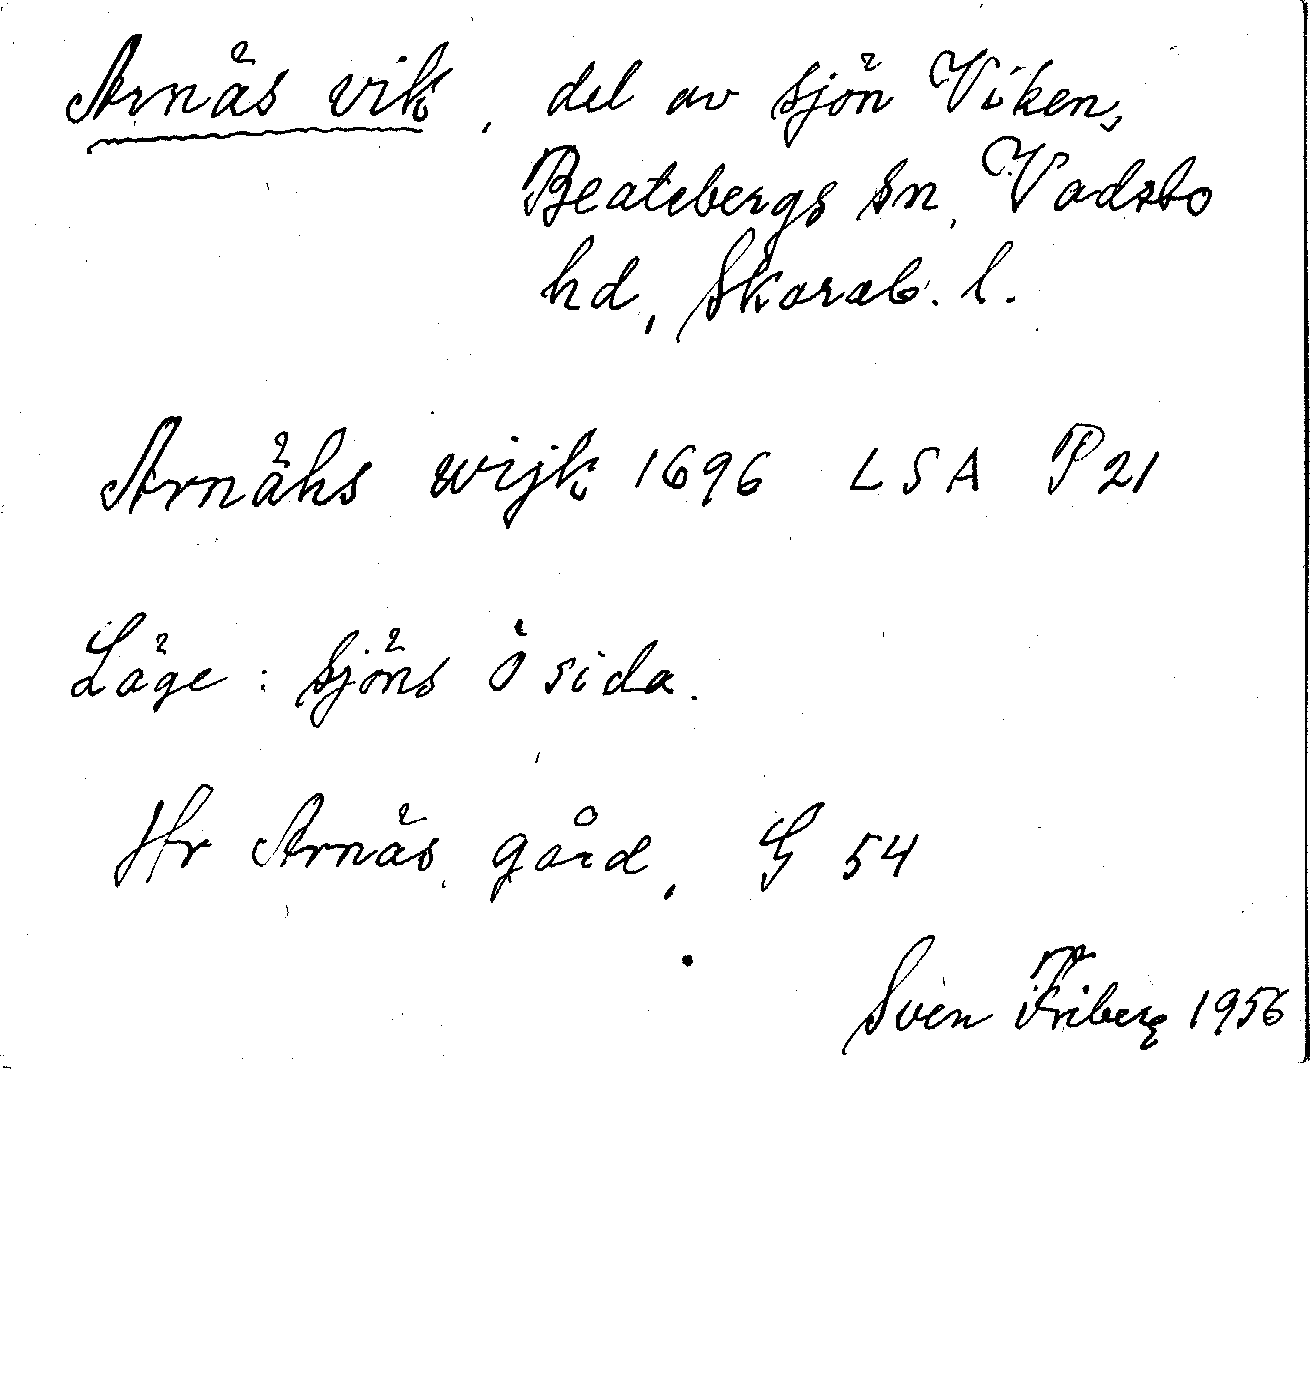 Arnäs vik, del av sjön Viken,
Beatebergs sn, Vadsbo
hd, Skarab. l.
Arnähs wijk 1696 LSA P21
Läge: sjöns ö sida.
Hr Arnäs gård, G 54
Sven Friberg 1956